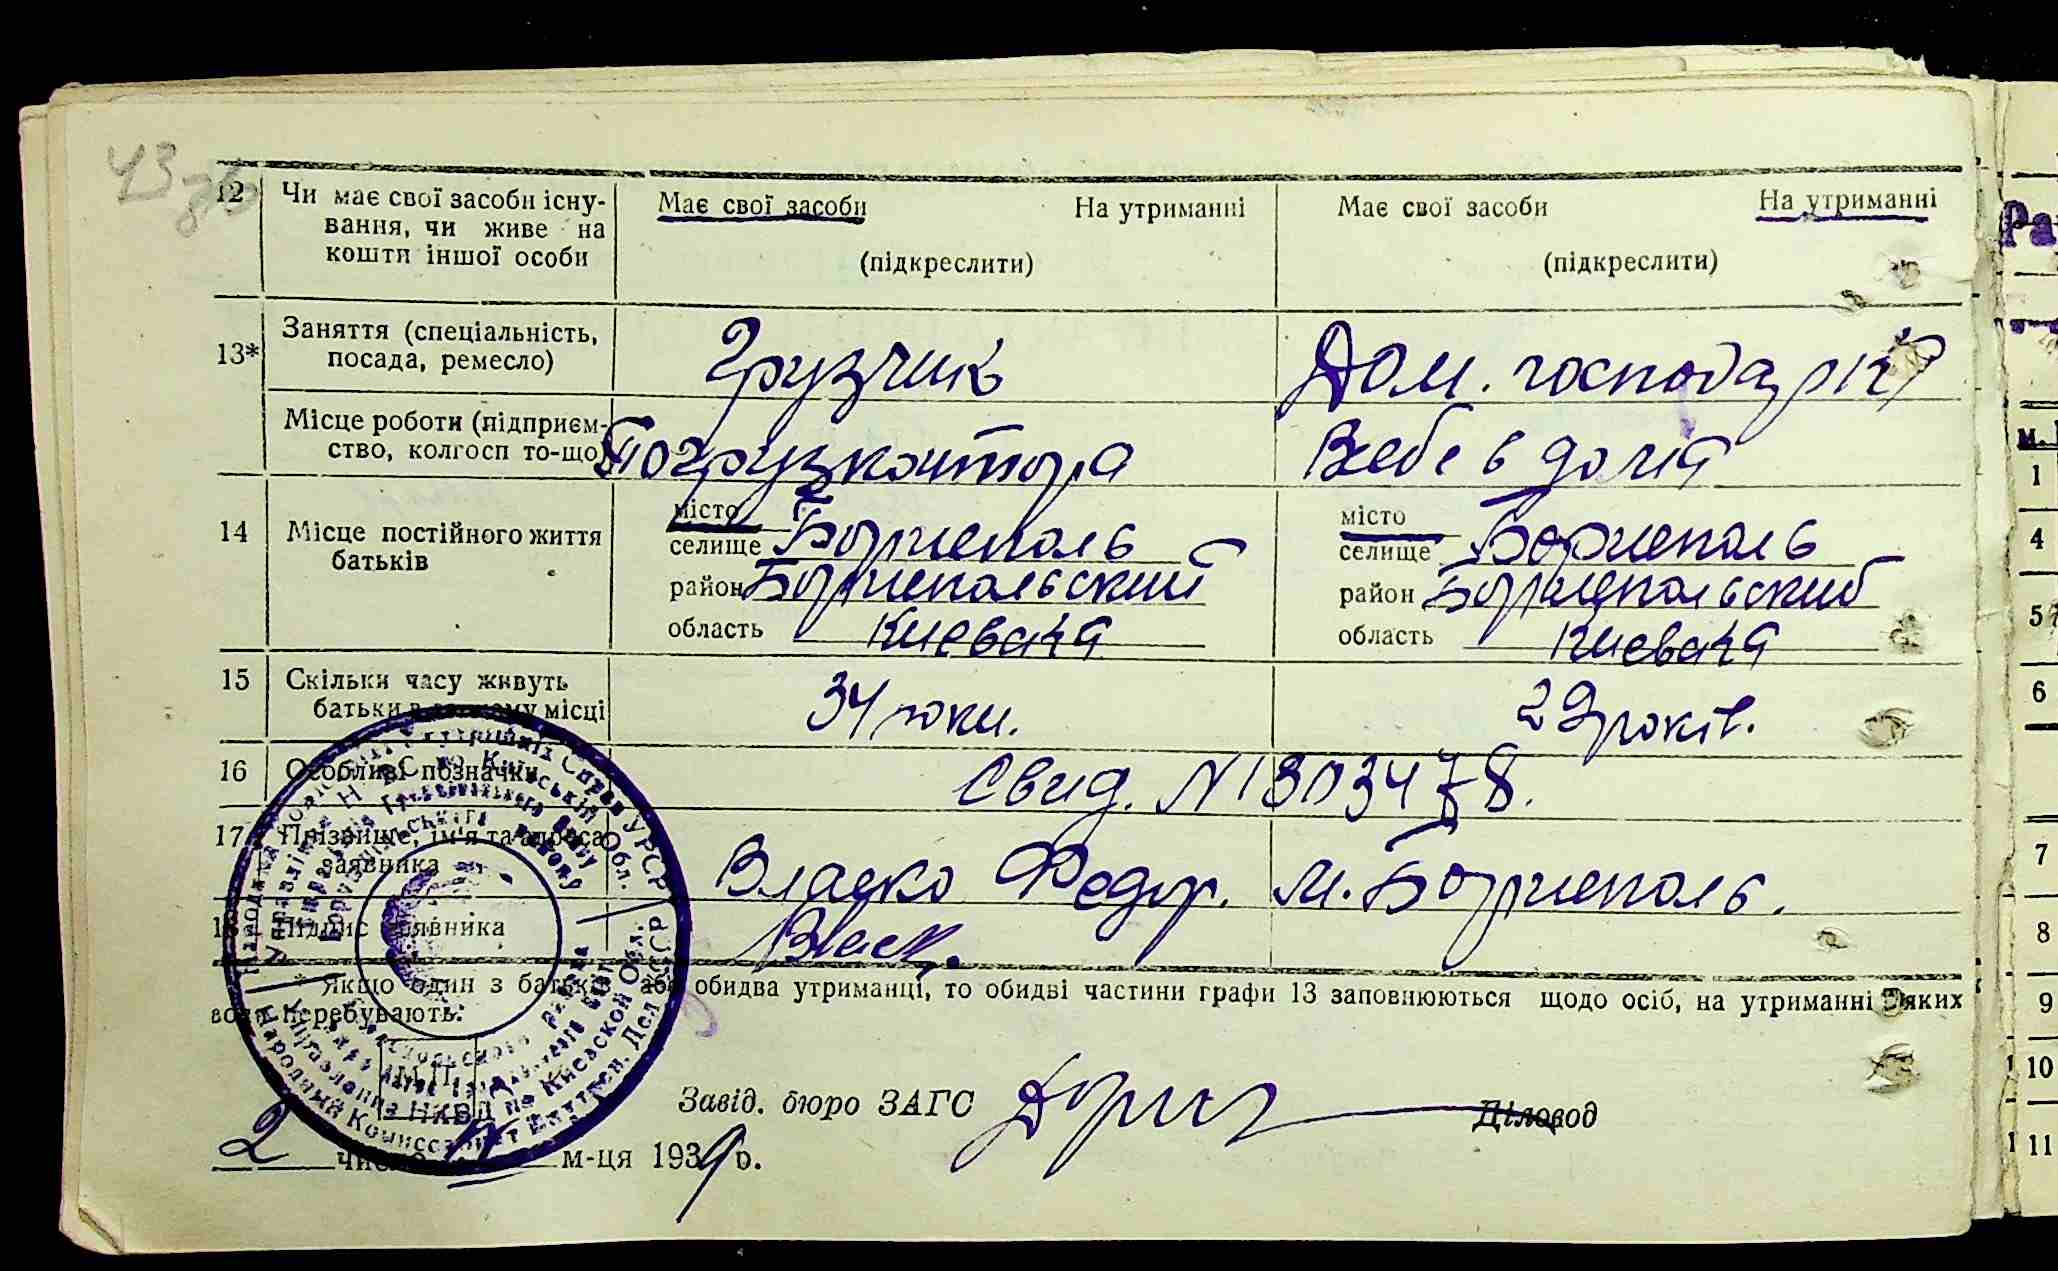 43 зв
12 Чи має свої засоби існу- Має свої засоби На утриманні Має свої засоби На утриманні
вання, чи живе на
кошти іншої особи (підкреслити) (підкреслити)
13* Заняття (спеціальність, Грузчик Дом. господарка
посада, ремесло)
Місце роботи (підприєм- Погрузконтора В себе в дома
ство, колгосп то-що)
14 Місце постійного життя місто Борисполь місто Борисполь
батьків селище селище
район Бориспольский район Бориспольский
область Киевская область Киевская
15 Скільки часу живуть 34 роки. 29 років.
батьки в місці
16 Особливі позначки Свид. №
17 Прізвище, ім'я та адреса Власко Федор. м. Борисполь.
заявника
18 Підпис заявника Власк.
* Якщо один з батьків або обидва утриманці, то обидві частини графи 13 заповнюються щодо осіб, на утриманні яких
вони перебувають.
М.П.
Завід. бюро ЗАГС Діловод
2 м-ця 1939 р.
Ра
м.
1
4
5
6
7
8
9
10
11